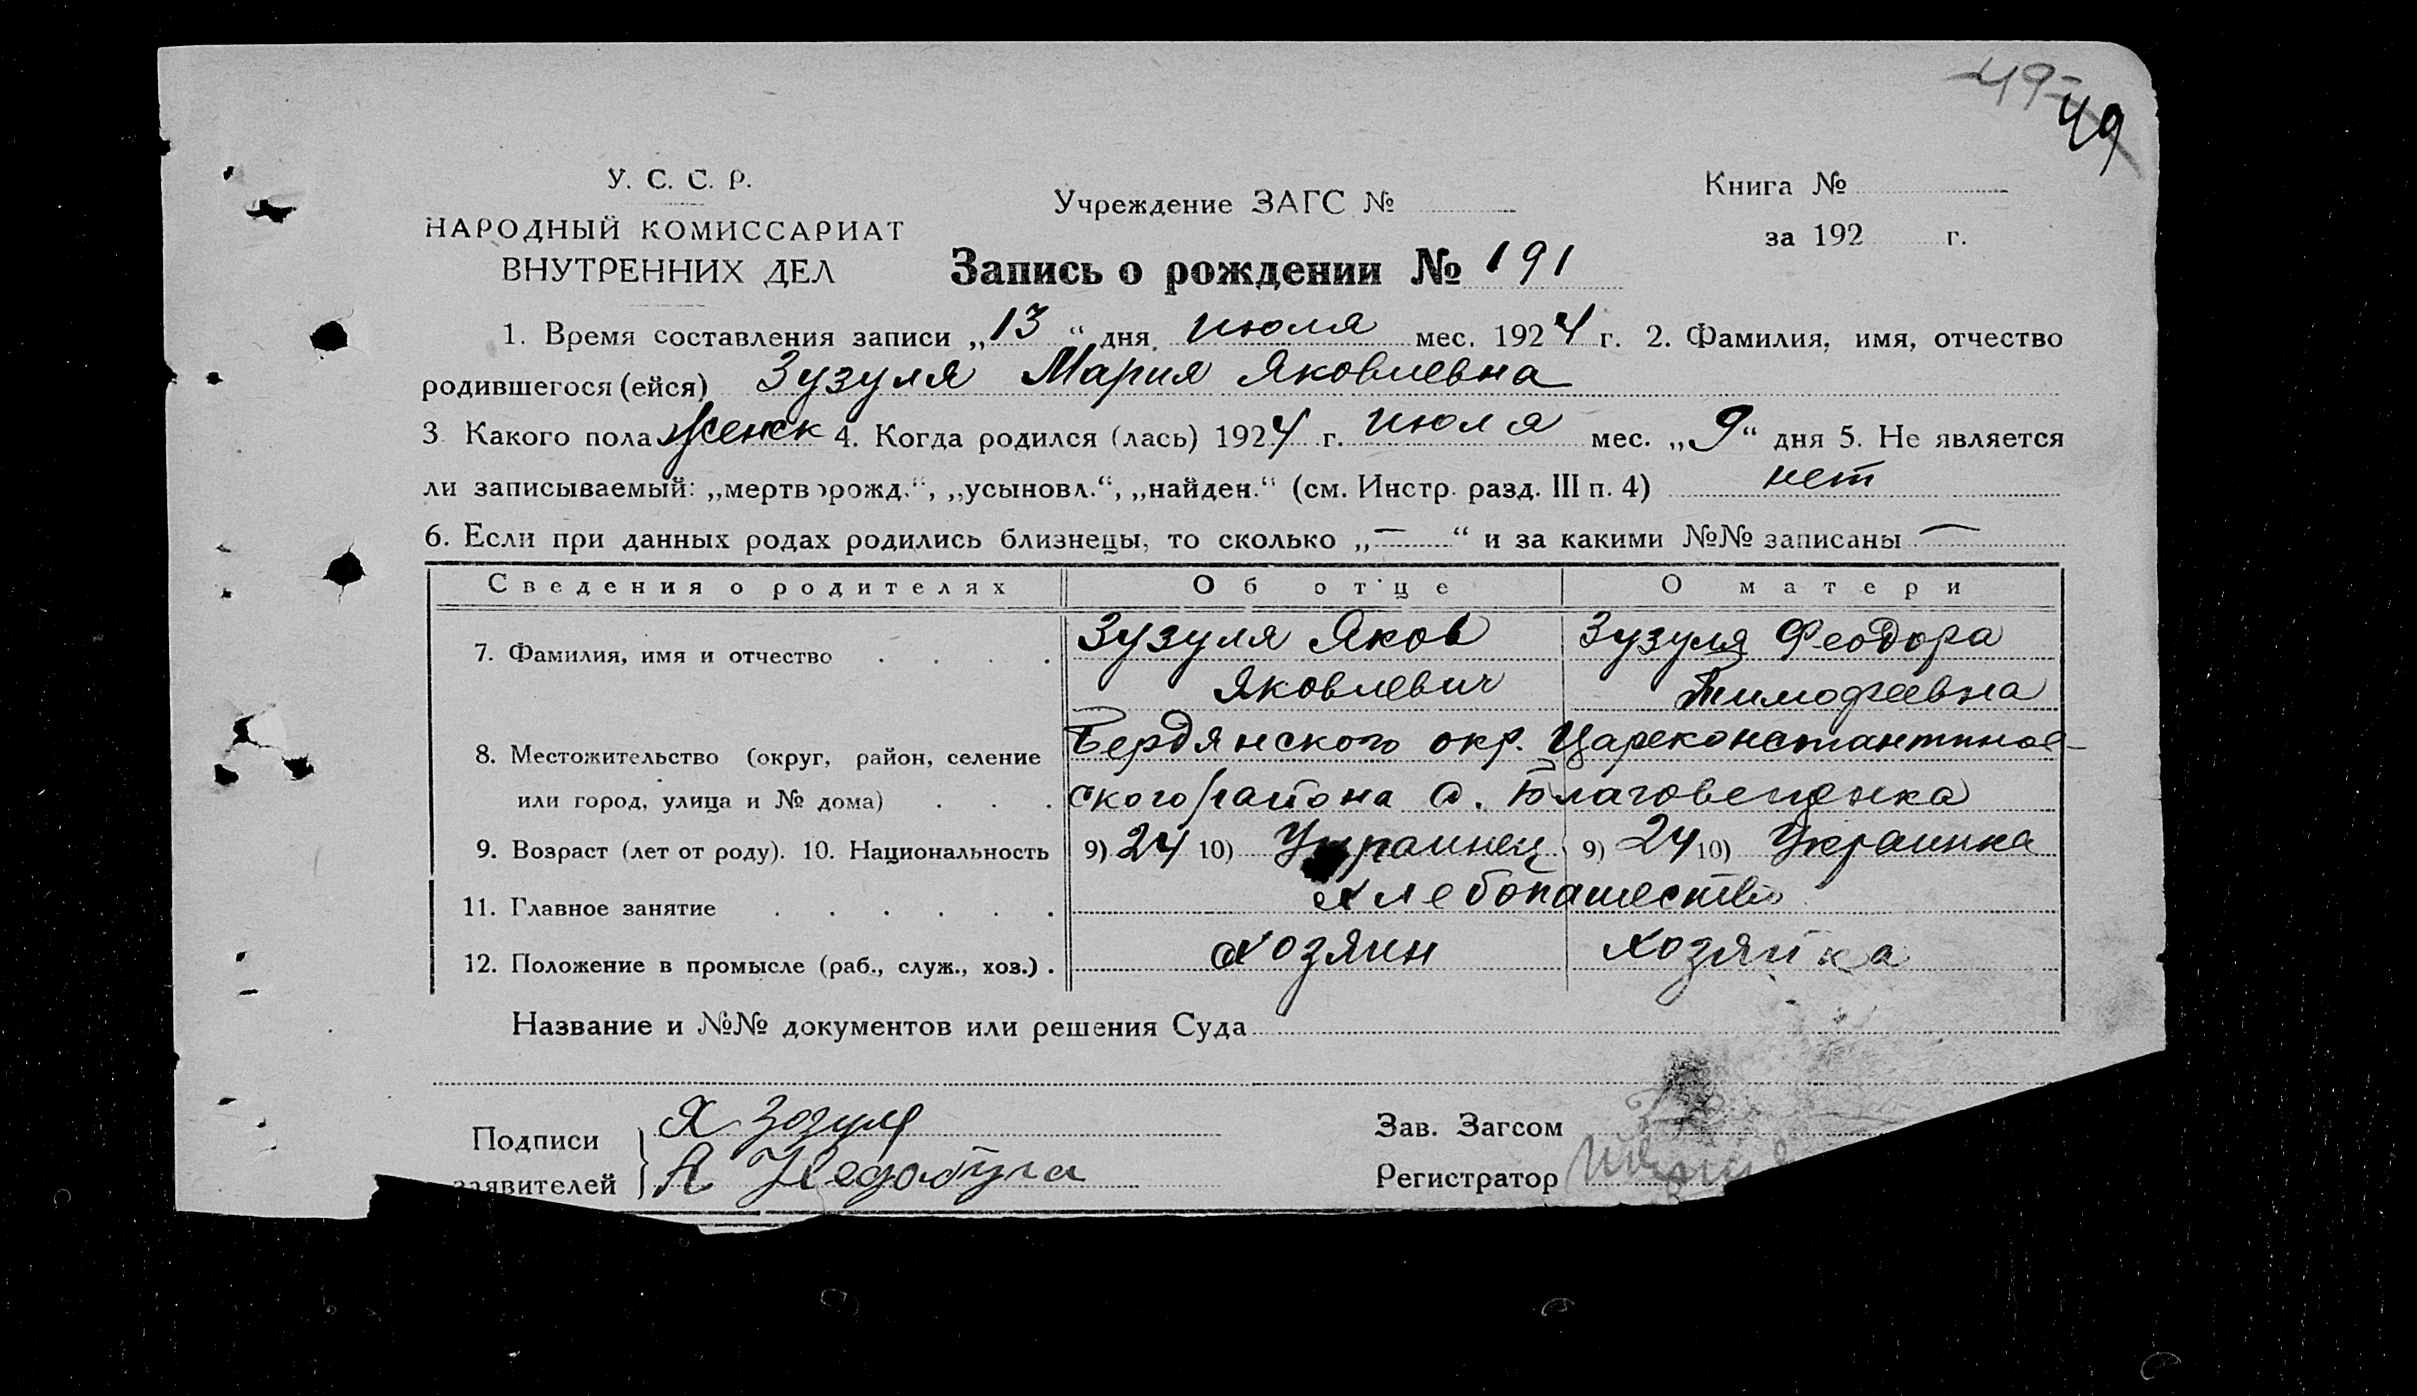 49
49
У. С. С. Р.
НАРОДНЫЙ КОМИССАРИАТ
ВНУТРЕННИХ ДЕЛ
Учреждение ЗАГС №
Книга №
за 192 г.
Запись о рождении № 191
1. Время составления записи „13“ дня июля мес. 1924 г. 2. Фамилия, имя, отчество
родившегося (ейся) Зузуля Мария Яковлевна
3 Какого пола женск 4. Когда родился (лась) 1924 г. июля мес. „9“ дня 5. Не является
ли записываемый: „мертворожд.“, „усыновл.“, „найден.“ (см. Инстр. разд. III п. 4) нет
6. Если при данных родах родились близнецы, то сколько „—“ и за какими №№ записаны —
Сведения о родителях Об отце О матери
7. Фамилия, имя и отчество . . . . Зузуля Яков Зузуля Феодора
Яковлевич Тимофеевна
8. Местожительство (округ, район, селение Бердянского окр. Цареконстантинов-
или город, улица и № дома) . . . ского района с. Благовещенка
9. Возраст (лет от роду). 10. Национальность 9) 24 10) Украинец 9) 24 10) Украинка
11. Главное занятие . . . . . . хлебопашество
12. Положение в промысле (раб., служ., хоз.) . хозяин хозяйка
Название и №№ документов или решения Суда
Подписи Я Зозуля
заявителей А
Зав. Загсом
Регистратор